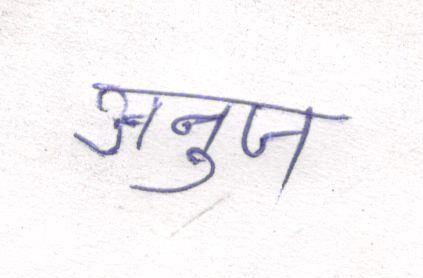 अनुज